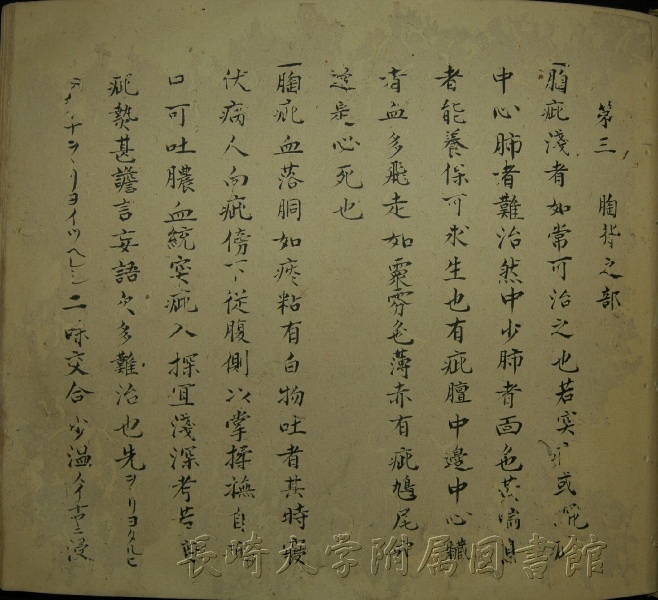 第三 胸背之部
一胸疵淺者如常可治之也若突 或
中心肺者難治然中少肺者面色黄喘息
者能養保可求生也有疵膻中邊中心
背血多飛走如粟雰色薄赤有疵鳩尾
這是心死也
一胸疵血落胴如痰粘有白物吐者其時寢
伏病人向疵傍下從腹側以掌揉撫自
口可吐膿血統突疵入探宜淺深考
疵熱甚譫言妄語欠多難治也先ヲリヨ
ヲリヨイツヘレシ二味交合少温 浸
長崎大学附属図書館